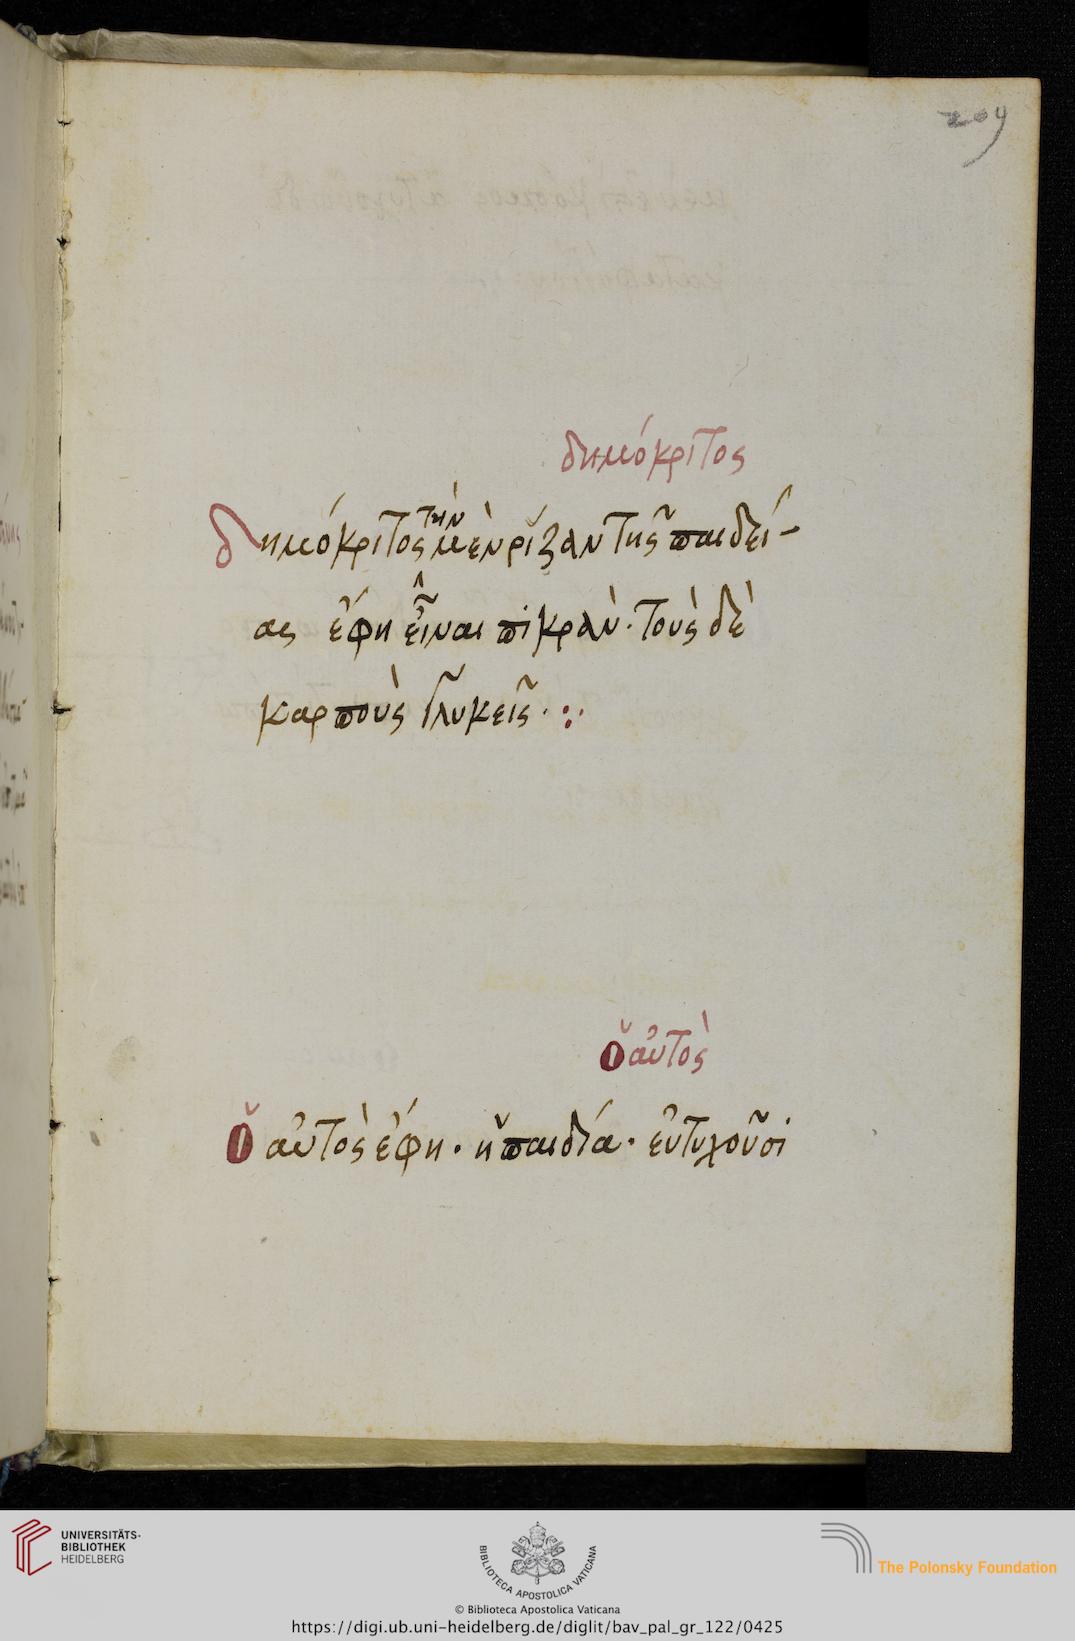 209
δημόκριτος
δημόκριτος τὴν μὲν ρίζαν τῆς παιδεί-
ας ἔφη εἶναι πικρὰν· τοὺς δὲ
καρποὺς γλυκεῖς· :·
ὁ αὐτὸς
Ὁ αὐτὸς ἔφη· ἡ παιδία· εὐτυχοῦσι
UNIVERSITÄTS-
BIBLIOTHEK
HEIDELBERG
BIBLIOTECA APOSTOLICA VATICANA
The Polonsky Foundation
© Biblioteca Apostolica Vaticana
https://digi.ub.uni-heidelberg.de/diglit/bav_pal_gr_122/0425